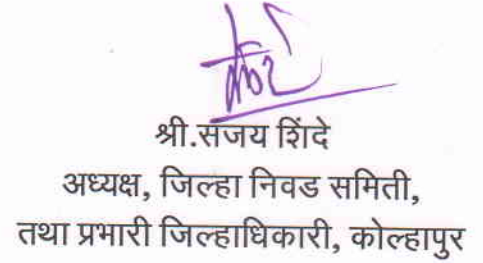 श्री.संजय शिंदे
अध्यक्ष, जिल्हा निवड समिती,
तथा प्रभारी जिल्हाधिकारी, कोल्हापुर